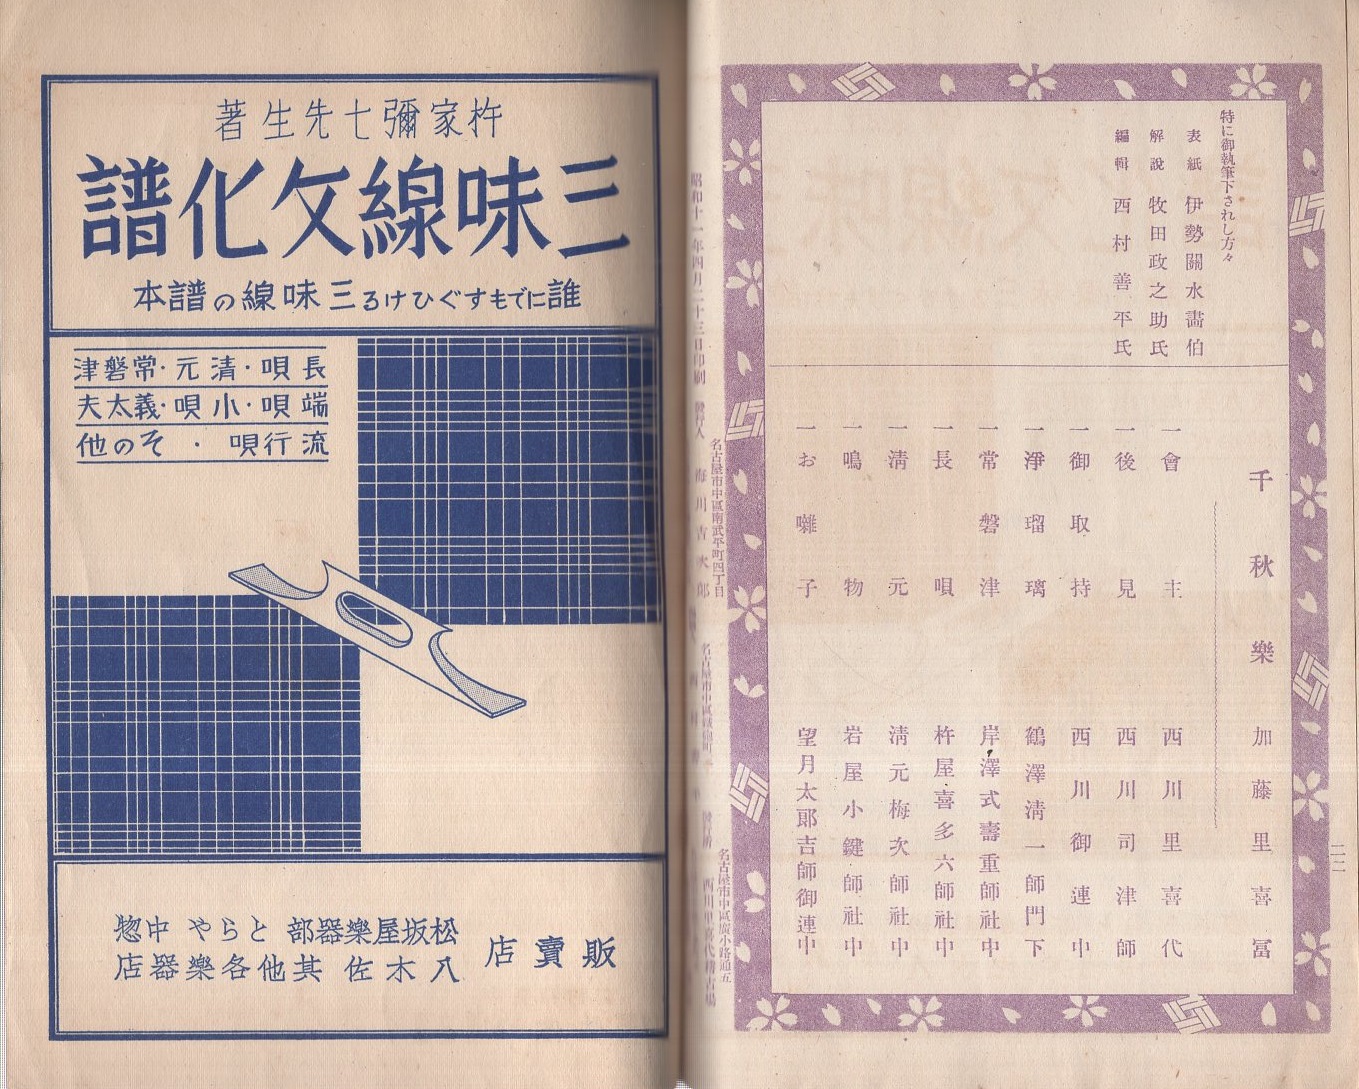 特に御執筆下されし方々
表紙 伊勢關水畵伯
解說 牧田政之助氏
編輯 西村善平氏
千秋樂 加藤里喜冨
一會主 西川里喜代
一後見 西川司津師
一御取持 西川御連中
一淨瑠璃 鶴澤淸一師門下
一常磐津 岸澤式壽重師社中
一長唄 杵屋喜多六師社中
一淸元 淸元梅次師社中
一鳴物 岩屋小鍵師社中
一お囃子 望月太郞吉師御連中
二三
昭和十一年四月二十三日印刷
發行人
名古屋市中區南武平町四丁目
海川吉次郎
發行所
名古屋市中區廣小路通五
西川里喜代稽古場
杵家彌七先生著
三味線文化譜
誰にでもすぐひける三味線の譜本
長唄・清元・常磐津
端唄・小唄・義太夫
流行唄・その他
販賣店
松坂屋樂器部 とらや 中惣
八木佐 其他各樂器店